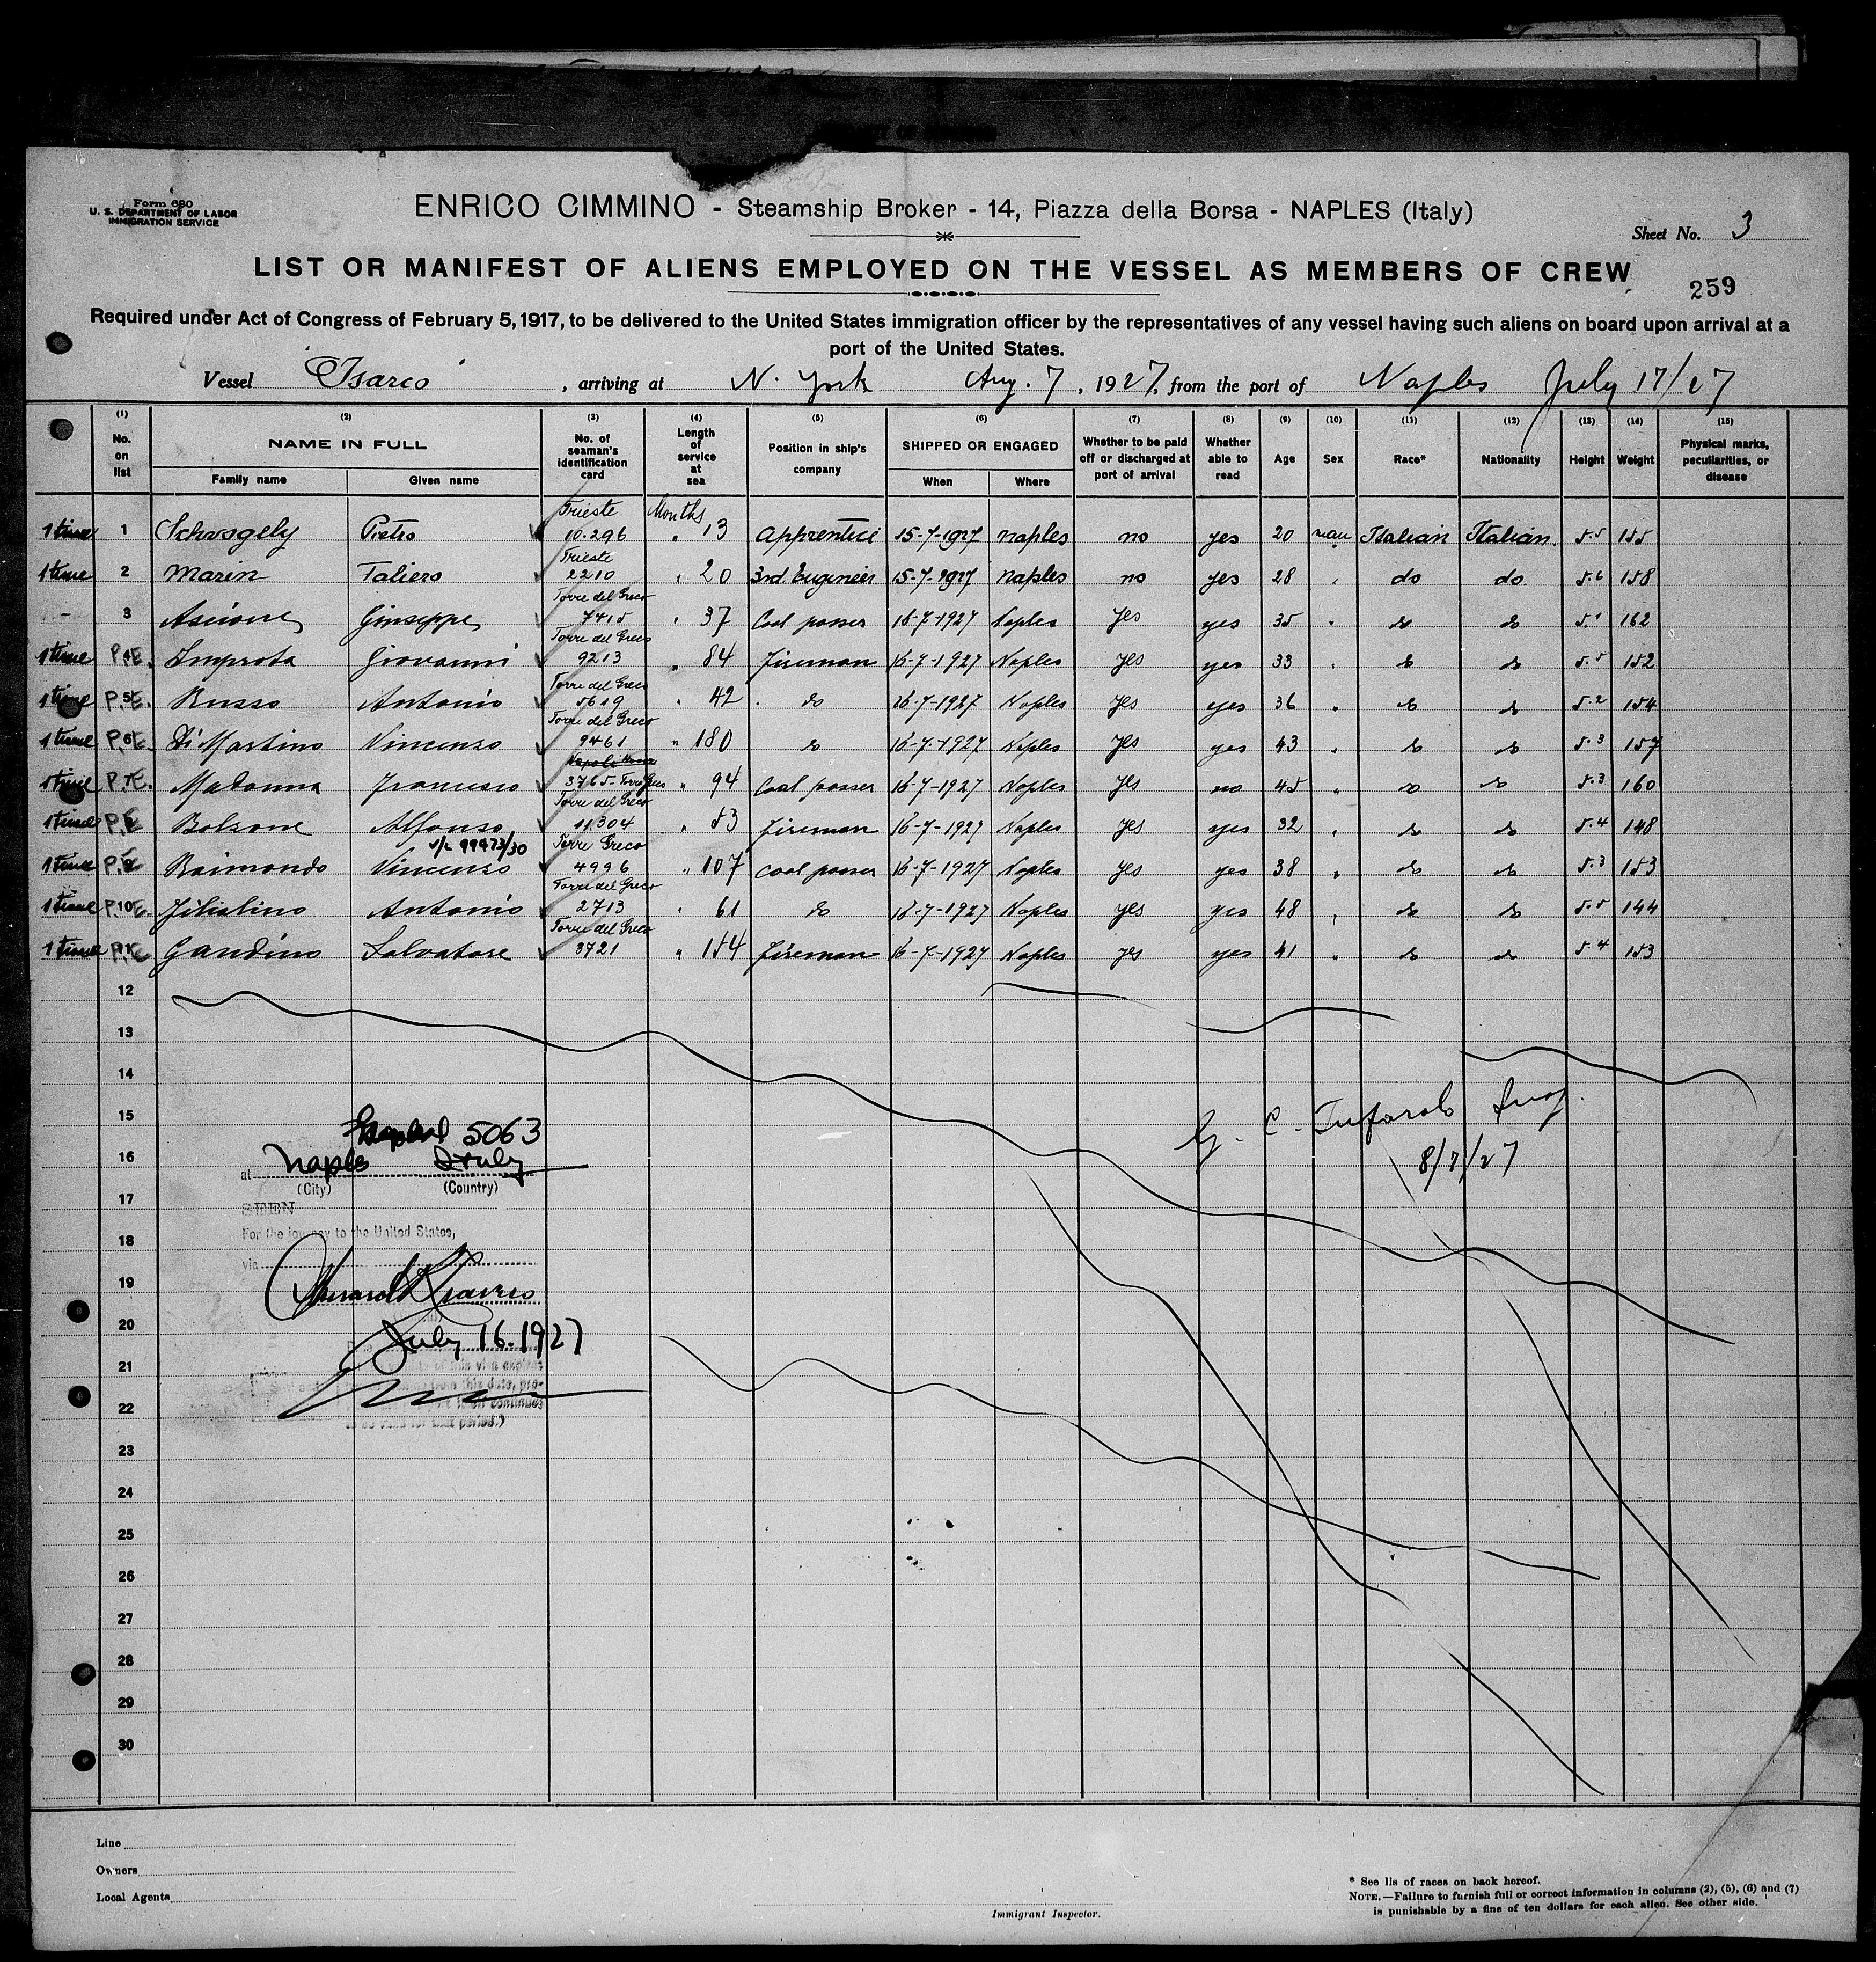 Form 680
U. S. DEPARTMENT OF LABOR
IMMIGRATION SERVICE
ENRICO CIMMINO - Steamship Broker - 14, Piazza della Borsa - NAPLES (Italy)
Sheet No. 3
LIST OR MANIFEST OF ALIENS EMPLOYED ON THE VESSEL AS MEMBERS OF CREW
259
Required under Act of Congress of February 5, 1917, to be delivered to the United States immigration officer by the representatives of any vessel having such aliens on board upon arrival at a
port of the United States.
Vessel "Isarco", arriving at N. York Aug. 7, 1927, from the port of Naples July 17/27
(1) (2) (3) (4) (5) (6) (7) (8) (9) (10) (11) (12) (13) (14) (15)
No. on list NAME IN FULL Family name Given name No. of seaman's identification card Length of service at sea Position in ship's company SHIPPED OR ENGAGED When Where Whether to be paid off or discharged at port of arrival Whether able to read Age Sex Race* Nationality Height Weight Physical marks, peculiarities, or disease
Trieste Months
1 time 1 Pietro 10.296 " 13 apprentice 15-7-1927 Naples no yes 20 man Italian Italian 5.5 155
Trieste
1 time 2 Marin Taliero 2210 " 20 3rd Engineer 15-7-1927 Naples no yes 28 " do do 5.6 158
Torre del Greco
- 3 Ascione Giuseppe 7415 " 37 Coal passer 16-7-1927 Naples yes yes 35 " do do 5.1 162
Torre del Greco
1 time P.4E. Improta Giovanni 9213 " 84 Fireman 16-7-1927 Naples yes yes 33 " do do 5.5 152
Torre del Greco
1 time P.5E. Russo Antonio 5619 " 42 do 16-7-1927 Naples yes yes 36 " do do 5.2 154
Torre del Greco
1 time P.6E. Di Martino Vincenzo 9461 " 180 do 16-7-1927 Naples yes yes 43 " do do 5.3 157
1 time P.7E. Madonna Francesco 3765-Torre Greco " 94 Coal passer 16-7-1927 Naples yes no 45 " do do 5.3 160
Torre del Greco
1 time P.E Alfonso 11304 " 53 Fireman 16-7-1927 Naples yes yes 32 " do do 5.4 148
99473/30 Torre Greco
1 time P.E Raimondo Vincenzo 4996 " 107 coal passer 16-7-1927 Naples yes yes 38 " do do 5.3 153
Torre del Greco
1 time P.10E. Antonio 2713 " 61 do 16-7-1927 Naples yes yes 48 " do do 5.5 144
Torre del Greco
1 time P.E Gaudino Salvatore 3721 " 154 Fireman 16-7-1927 Naples yes yes 41 " do do 5.4 153
12
13
14
15
5063
16
at Naples Italy
(City) (Country)
G. C. Tufarolo Insp.
8/7/27
17
SEEN
For the journey to the United States,
18
via
19
20
July 16. 1927
21
22
23
24
25
26
27
28
29
30
Line
Owners
Local Agents
Immigrant Inspector.
* See lis of races on back hereof.
NOTE.—Failure to furnish full or correct information in columns (2), (5), (6) and (7)
is punishable by a fine of ten dollars for each alien. See other side.